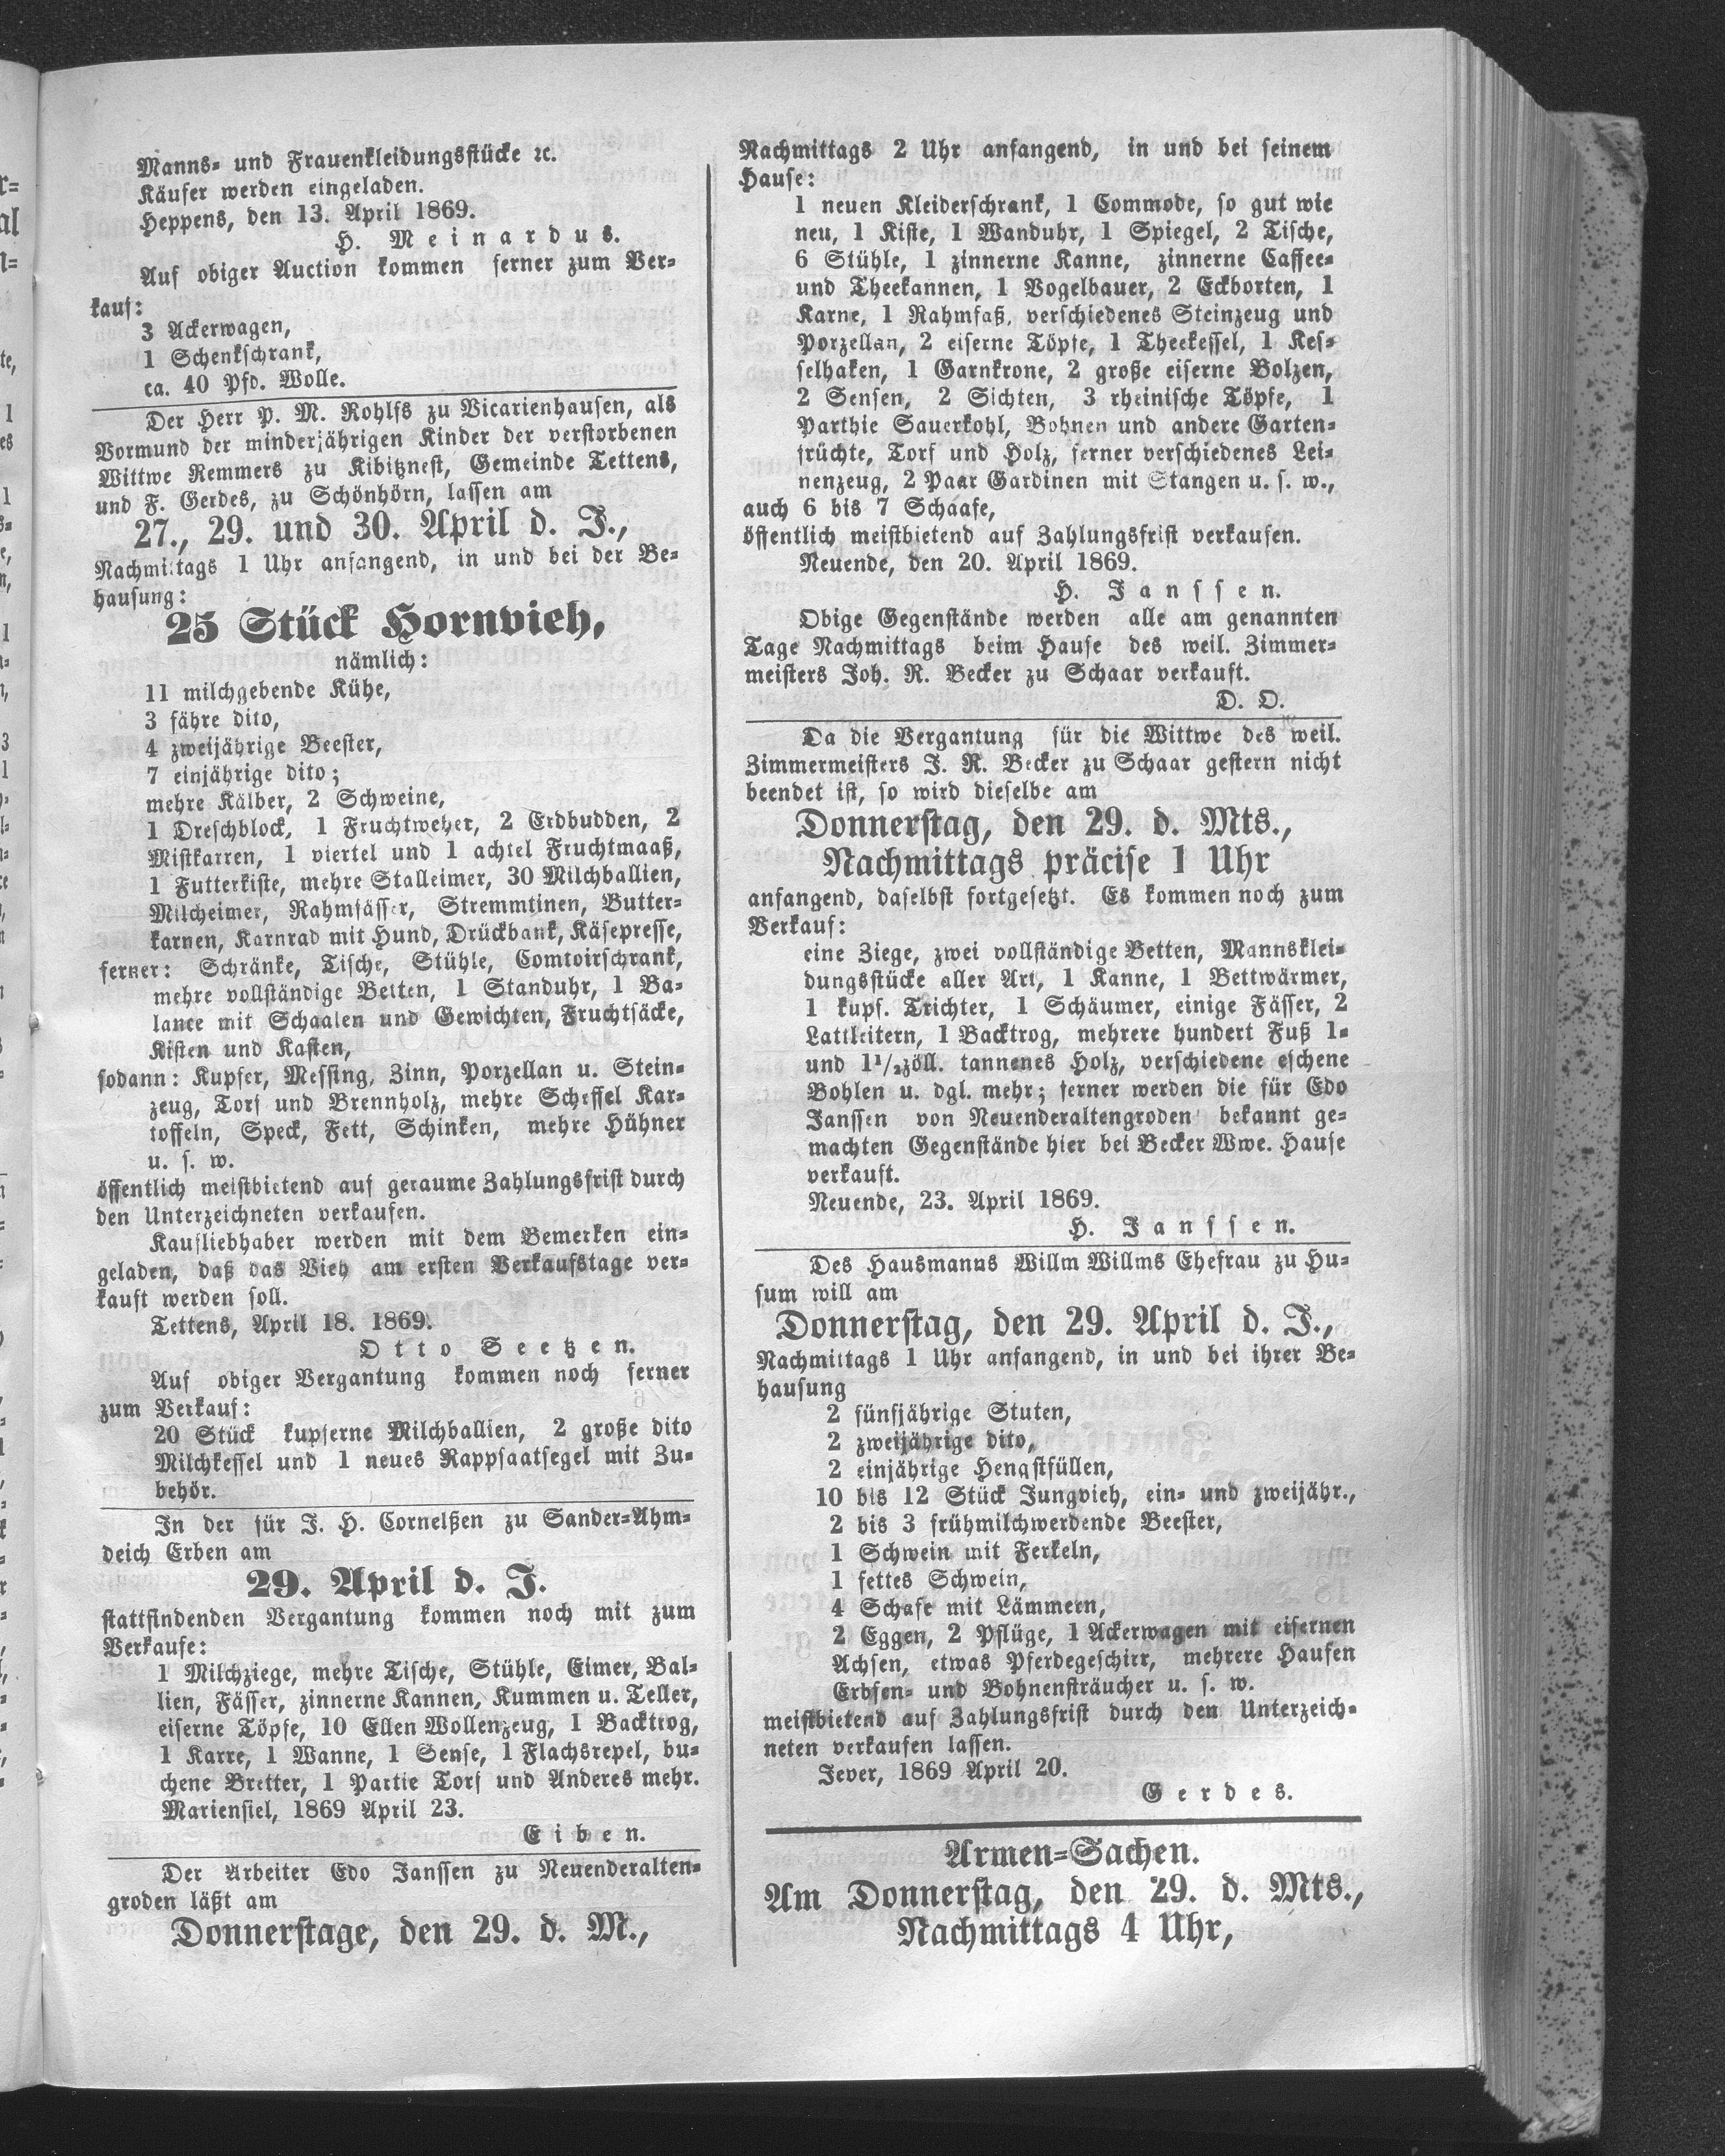 Manns- und Frauenkleidungsstücke ꝛc.
Käufer werden eingeladen.
Heppens, den 13. April 1869.
H. Meinardus.
Auf obiger Auction kommen ferner zum Ver-
kauf:
3 Ackerwagen,
1 Schenkschrank,
ca. 40 Pfd. Wolle.
Der Herr P. M. Rohlfs zu Vicarienhausen, als
Vormund der minderjährigen Kinder der verstorbenen
Wittwe Remmers zu Kibitznest, Gemeinde Tettens,
und F. Gerdes, zu Schönhörn, lassen am
27., 29. und 30. April d. J.,
Nachmittags 1 Uhr anfangend, in und bei der Be-
hausung:
25 Stück Hornvieh,
nämlich:
11 milchgebende Kühe,
3 fähre dito,
4 zweijährige Beester,
7 einjährige dito;
mehre Kälber, 2 Schweine,
1 Dreschblock, 1 Fruchtweher, 2 Erdbudden, 2
Mistkarren, 1 viertel und 1 achtel Fruchtmaaß,
1 Futterkiste, mehre Stalleimer, 30 Milchballien,
Milcheimer, Rahmfässer, Stremmtinen, Butter-
karnen, Karnrad mit Hund, Drückbank, Käsepresse,
ferner: Schränke, Tische, Stühle, Comtoirschrank,
mehre vollständige Betten, 1 Standuhr, 1 Ba-
lance mit Schaalen und Gewichten, Fruchtsäcke,
Kisten und Kasten,
sodann: Kupfer, Messing, Zinn, Porzellan u. Stein-
zeug, Torf und Brennholz, mehre Scheffel Kar-
toffeln, Speck, Fett, Schinken, mehre Hühner
u. s. w.
öffentlich meistbietend auf geraume Zahlungsfrist durch
den Unterzeichneten verkaufen.
Kaufliebhaber werden mit dem Bemerken ein-
geladen, daß das Vieh am ersten Verkaufstage ver-
kauft werden soll.
Tettens, April 18. 1869.
Otto Seetzen.
Auf obiger Vergantung kommen noch ferner
zum Verkauf:
20 Stück kupferne Milchballien, 2 große dito
Milchkessel und 1 neues Rappsaatsegel mit Zu-
behör.
In der für J. H. Cornelßen zu Sander-Ahm-
deich Erben am
29. April d. J.
stattfindenden Vergantung kommen noch mit zum
Verkaufe:
1 Milchziege, mehre Tische, Stühle, Eimer, Bal-
lien, Fässer, zinnerne Kannen, Kummen u. Teller,
eiserne Töpfe, 10 Ellen Wollenzeug, 1 Backtrog,
1 Karre, 1 Wanne, 1 Sense, 1 Flachsrepel, bu-
chene Bretter, 1 Partie Torf und Anderes mehr.
Mariensiel, 1869 April 23.
Eiben.
Der Arbeiter Edo Janssen zu Neuenderalten-
groden läßt am
Donnerstage, den 29. d. M.,
Nachmittags 2 Uhr anfangend, in und bei seinem
Hause:
1 neuen Kleiderschrank, 1 Commode, so gut wie
neu, 1 Kiste, 1 Wanduhr, 1 Spiegel, 2 Tische,
6 Stühle, 1 zinnerne Kanne, zinnerne Caffee-
und Theekannen, 1 Vogelbauer, 2 Eckborten, 1
Karne, 1 Rahmfaß, verschiedenes Steinzeug und
Porzellan, 2 eiserne Töpfe, 1 Theekessel, 1 Kes-
selhaken, 1 Garnkrone, 2 große eiserne Bolzen,
2 Sensen, 2 Sichten, 3 rheinische Töpfe, 1
Parthie Sauerkohl, Bohnen und andere Garten-
früchte, Torf und Holz, ferner verschiedenes Lei-
nenzeug, 2 Paar Gardinen mit Stangen u. s. w.,
auch 6 bis 7 Schaafe,
öffentlich meistbietend auf Zahlungsfrist verkaufen.
Neuende, den 20. April 1869.
H. Janssen.
Obige Gegenstände werden alle am genannten
Tage Nachmittags beim Hause des weil. Zimmer-
meisters Joh. R. Becker zu Schaar verkauft.
D. O.
Da die Vergantung für die Wittwe des weil.
Zimmermeisters J. R. Becker zu Schaar gestern nicht
beendet ist, so wird dieselbe am
Donnerstag, den 29. d. Mts.,
Nachmittags präcise 1 Uhr
anfangend, daselbst fortgesetzt. Es kommen noch zum
Verkauf:
eine Ziege, zwei vollständige Betten, Mannsklei-
dungsstücke aller Art, 1 Kanne, 1 Bettwärmer,
1 kupf. Trichter, 1 Schäumer, einige Fässer, 2
Lattleitern, 1 Backtrog, mehrere hundert Fuß 1-
und 1 1/2zöll. tannenes Holz, verschiedene eschene
Bohlen u. dgl. mehr; ferner werden die für Edo
Janssen von Neuenderaltengroden bekannt ge-
machten Gegenstände hier bei Becker Wwe. Hause
verkauft.
Neuende, 23. April 1869.
H. Janssen.
Des Hausmanns Willm Willms Ehefrau zu Hu-
sum will am
Donnerstag, den 29. April d. J.,
Nachmittags 1 Uhr anfangend, in und bei ihrer Be-
hausung
2 fünfjährige Stuten,
2 zweijährige dito,
2 einjährige Hengstfüllen,
10 bis 12 Stück Jungvieh, ein- und zweijähr.,
2 bis 3 frühmilchwerdende Beester,
1 Schwein mit Ferkeln,
1 fettes Schwein,
4 Schafe mit Lämmern,
2 Eggen, 2 Pflüge, 1 Ackerwagen mit eisernen
Achsen, etwas Pferdegeschirr, mehrere Haufen
Erbsen- und Bohnensträucher u. s. w.
meistbietend auf Zahlungsfrist durch den Unterzeich-
neten verkaufen lassen.
Jever, 1869 April 20.
Gerdes.
Armen-Sachen.
Am Donnerstag, den 29. d. Mts.,
Nachmittags 4 Uhr,